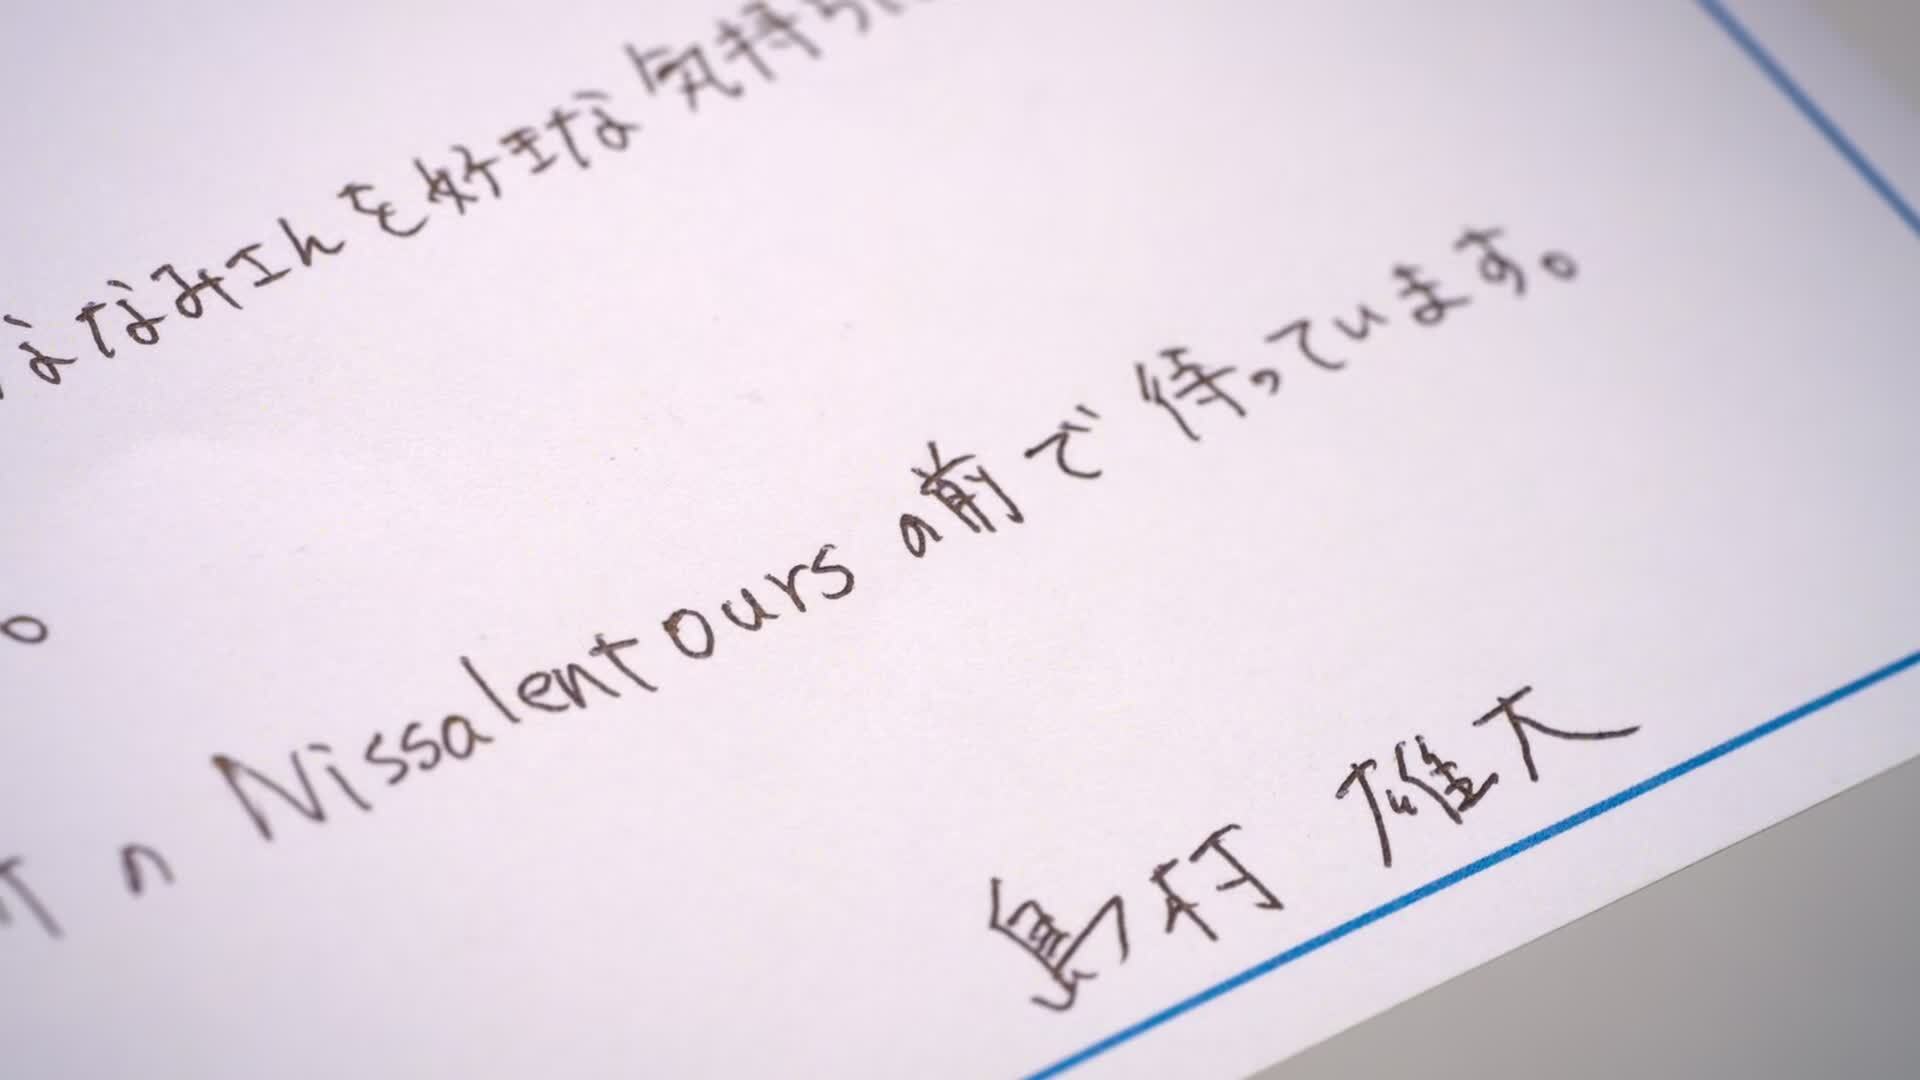 ななみさんを好きな気持ち
。
の Nissalentoursの前で待っています。
島村 雄大